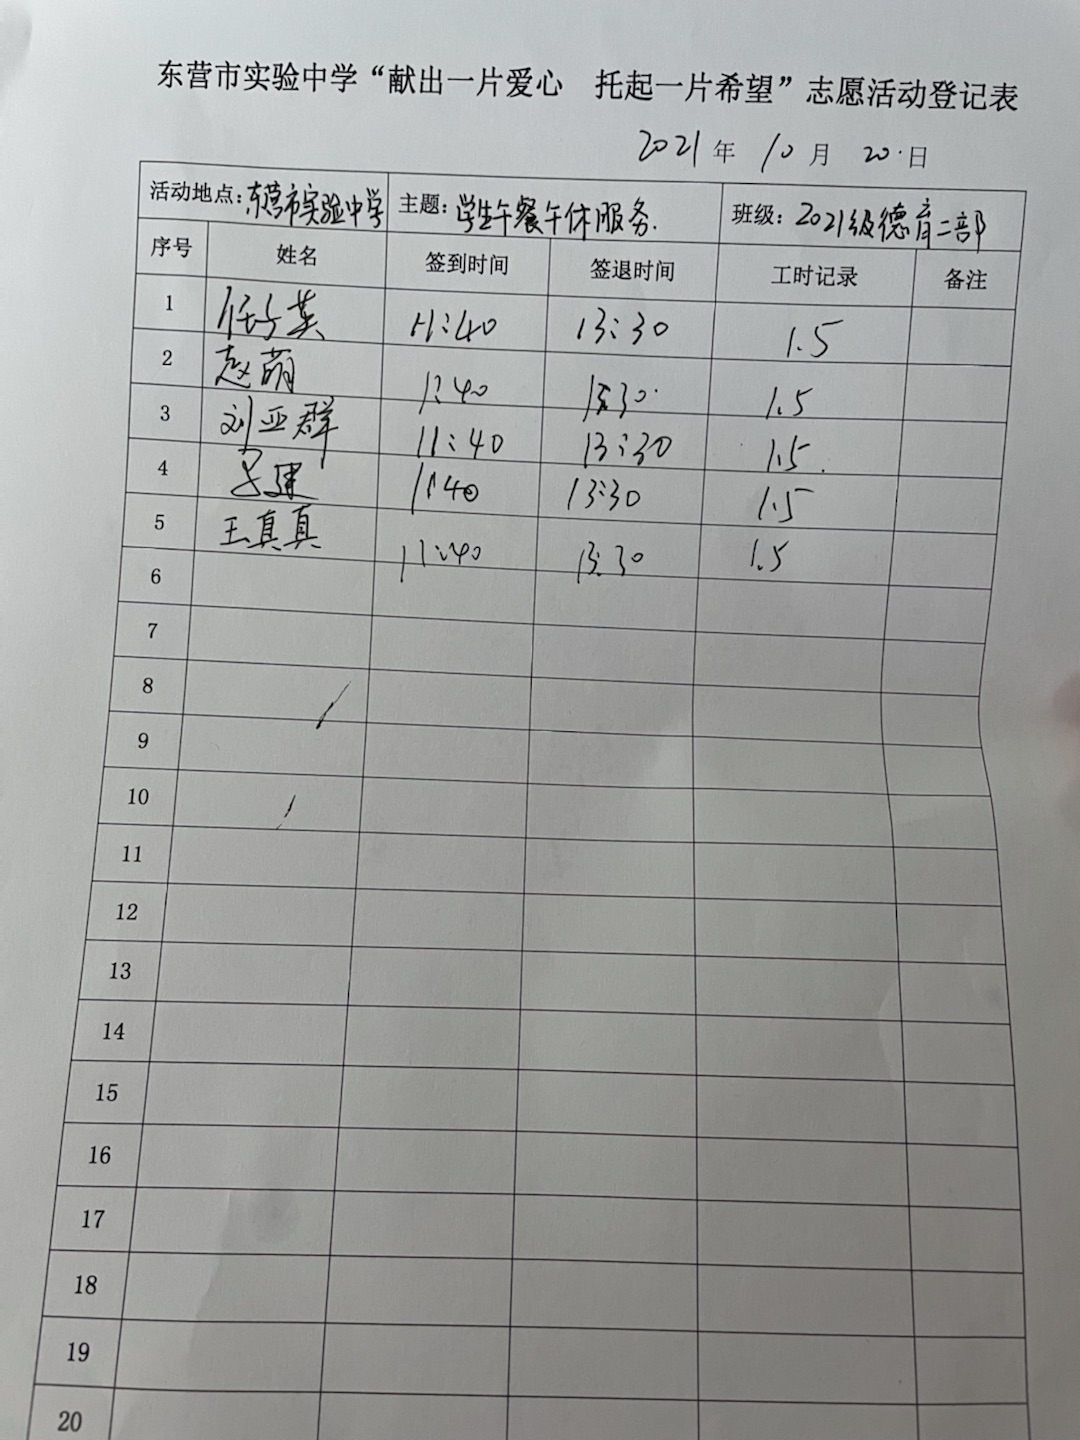 东营市实验中学“献出一片爱心 托起一片希望”志愿活动登记表
2021 年 10 月 20 日
活动地点：东营市实验中学 主题：学生午餐午休服务. 班级：2021级德育二部
序号 姓名 签到时间 签退时间 工时记录 备注
1 任 英 11:40 13:30 1.5
2 赵萌 11:40 13:30 1.5
3 刘亚群 11:40 13:30 1.5
4 建 11:40 13:30 1.5
5 王真真 11:40 13:30 1.5
6
7
8
9
10
11
12
13
14
15
16
17
18
19
20